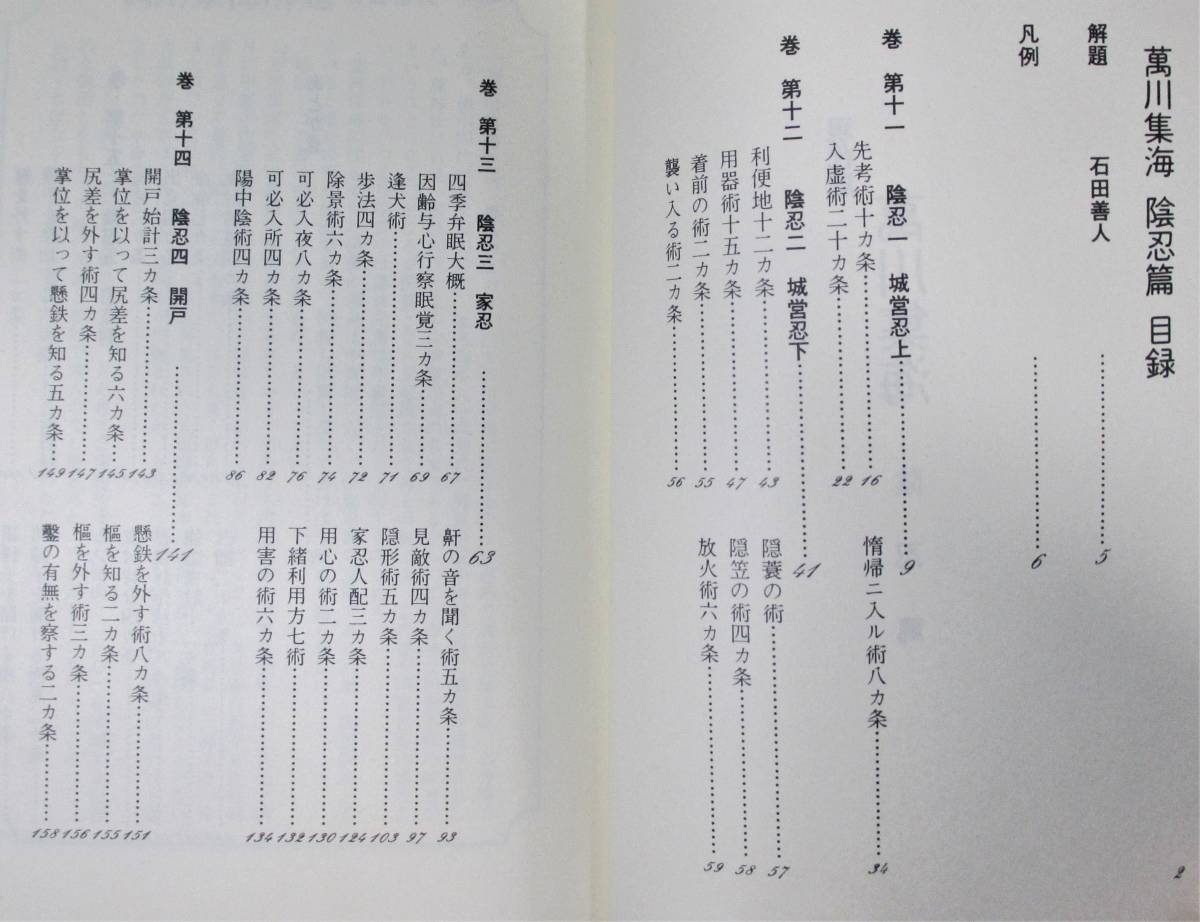 萬川集海 陰忍篇 目録
解題 石田善人……5
凡例……6
巻 第十一 陰忍一 城営忍上……9
先考術十カ条……16
入虚術二十カ条……22
惰帰ニ入ル術八カ条……34
巻 第十二 陰忍二 城営忍下……41
利便地十二カ条……43
用器術十五カ条……47
着前の術二カ条……55
襲い入る術二カ条……56
隠蓑の術……57
隠笠の術四カ条……58
放火術六カ条……59
2
巻 第十三 陰忍三 家忍……63
四季弁眠大概……67
因齢与心行察眠覚三カ条……69
逢犬術……71
歩法四カ条……72
除景術六カ条……74
可必入夜八カ条……76
可必入所四カ条……82
陽中陰術四カ条……86
鼾の音を聞く術五カ条……93
見敵術四カ条……97
隠形術五カ条……103
家忍人配三カ条……124
用心の術二カ条……130
下緒利用方七術……132
用害の術六カ条……134
巻 第十四 陰忍四 開戸……141
開戸始計三カ条……143
掌位を以って尻差を知る六カ条……145
尻差を外す術四カ条……147
掌位を以って懸鉄を知る五カ条……149
懸鉄を外す術八カ条……151
樞を知る二カ条……155
樞を外す術三カ条……156
鑿の有無を察する二カ条……158